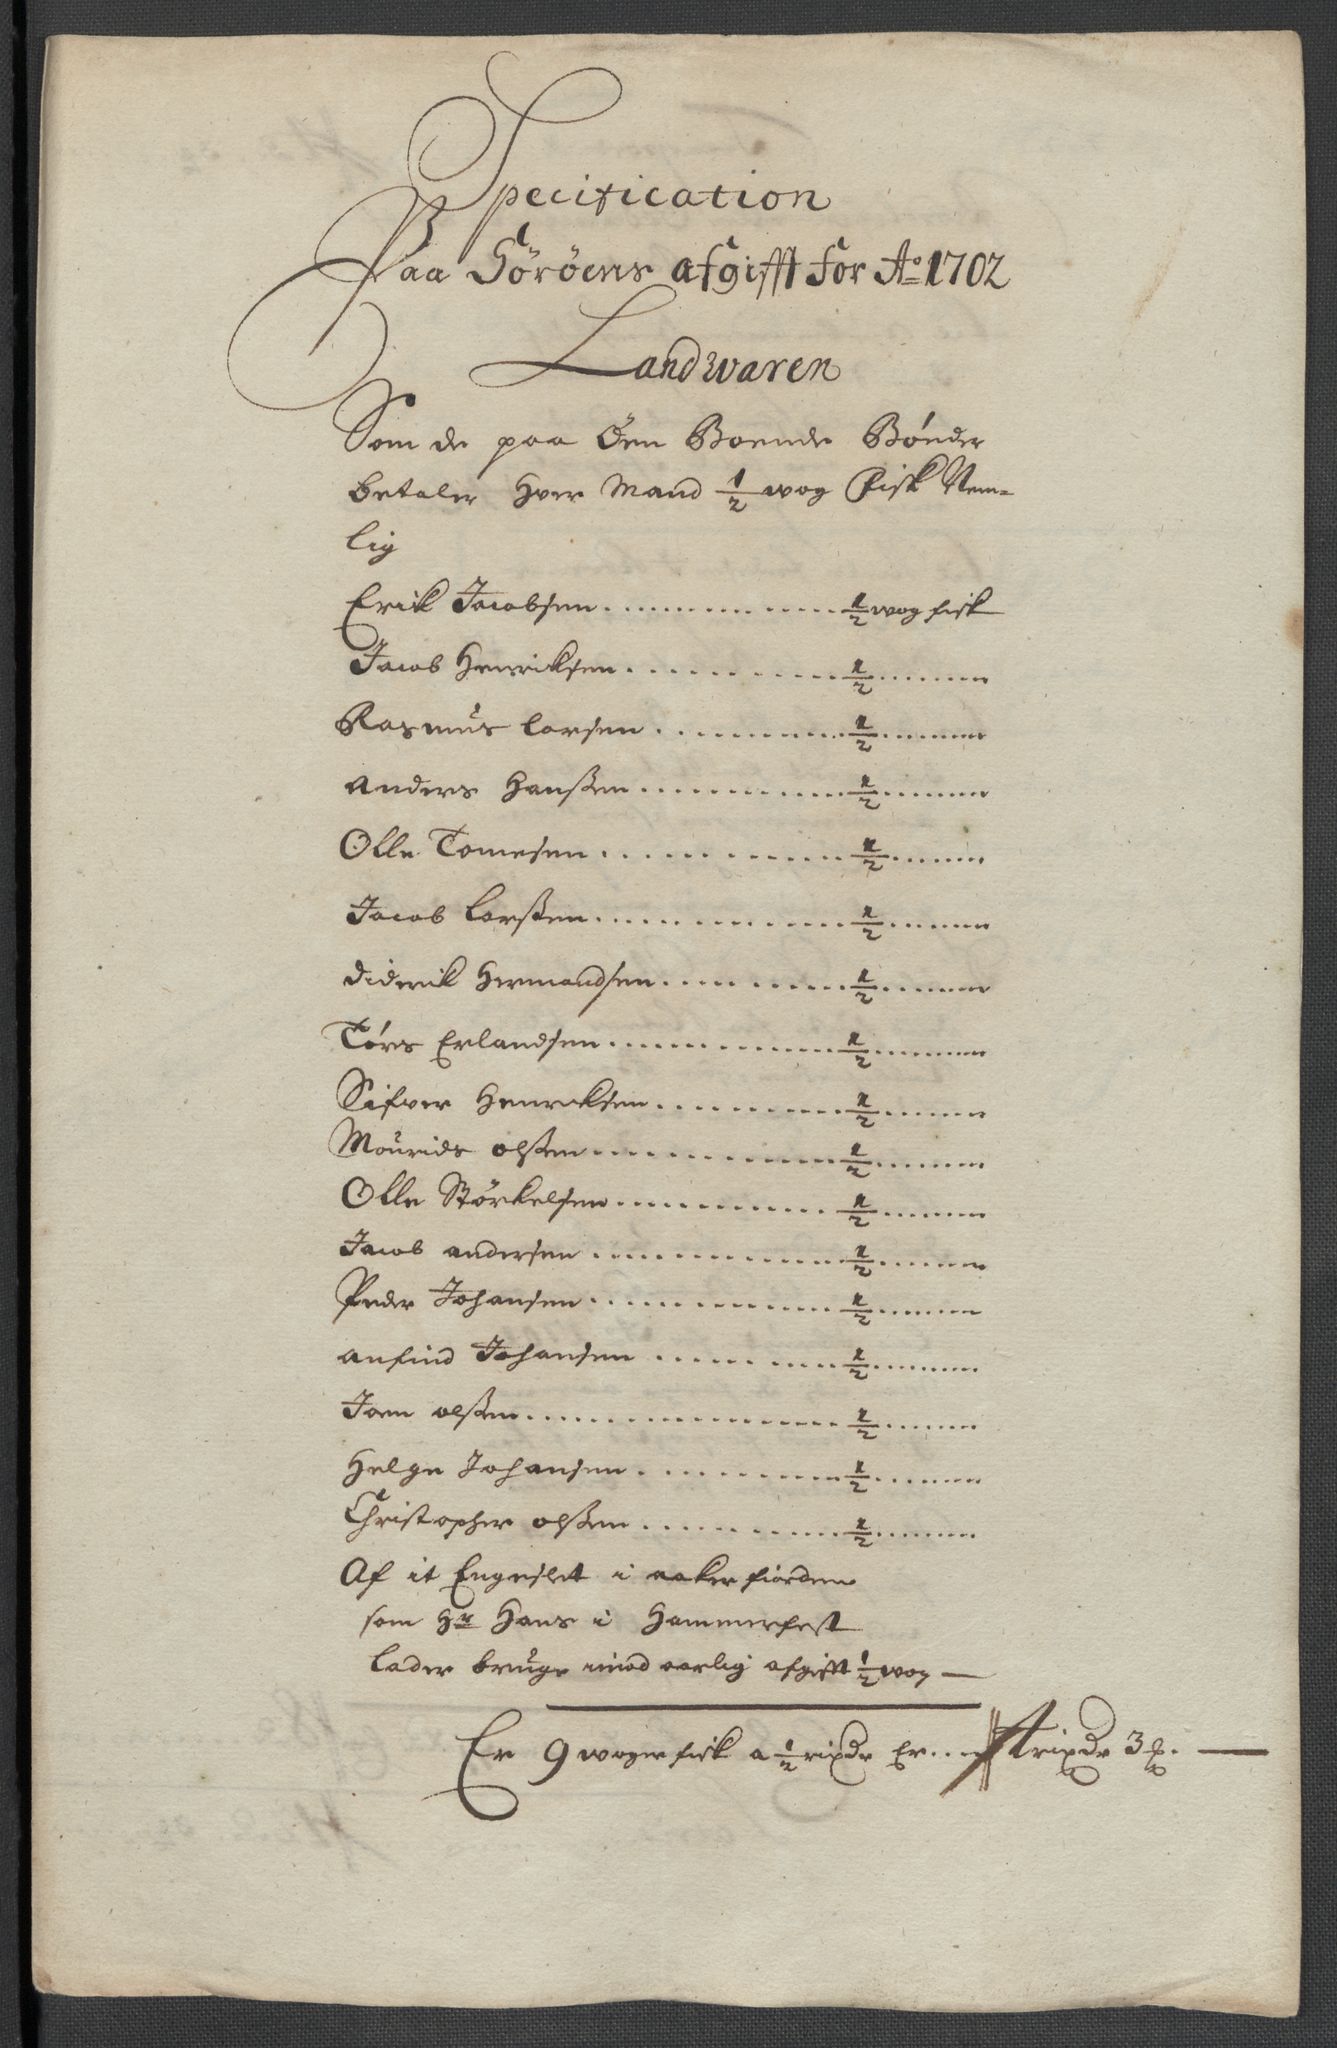 Specification
Paa Söröens afgifft for Ao 1702
Landwaren
Som de paa Öen Boende Bönder
betaler hver Mand 1/2 wog Fisk Nem=
lig
Erik Jacobsen 1/2 wog fisk
Jacob Henricksen 1/2
Rasmus Larsen 1/2
Anders Hanßen 1/2
Olle Tomesen 1/2
Jacob Larßen 1/2
Diderik Hermandsen 1/2
Törs Erlandsen 1/2
Sifver Henricksen 1/2
Mourids olßen 1/2
Olle Störkelsen 1/2
Jacob andersen 1/2
Peder Johansen 1/2
anfind Johansen 1/2
Joen olßen 1/2
Helge Johansen 1/2
Christopher olßen 1/2
Af it Engeslet i aakerfiorden
som Hr Hans i Hammerfest
lader bruge imod aarlig afgifft 1/2 wog
Er 9 woger fisk a 1/2 rixdr Er rixdr 3 ß.